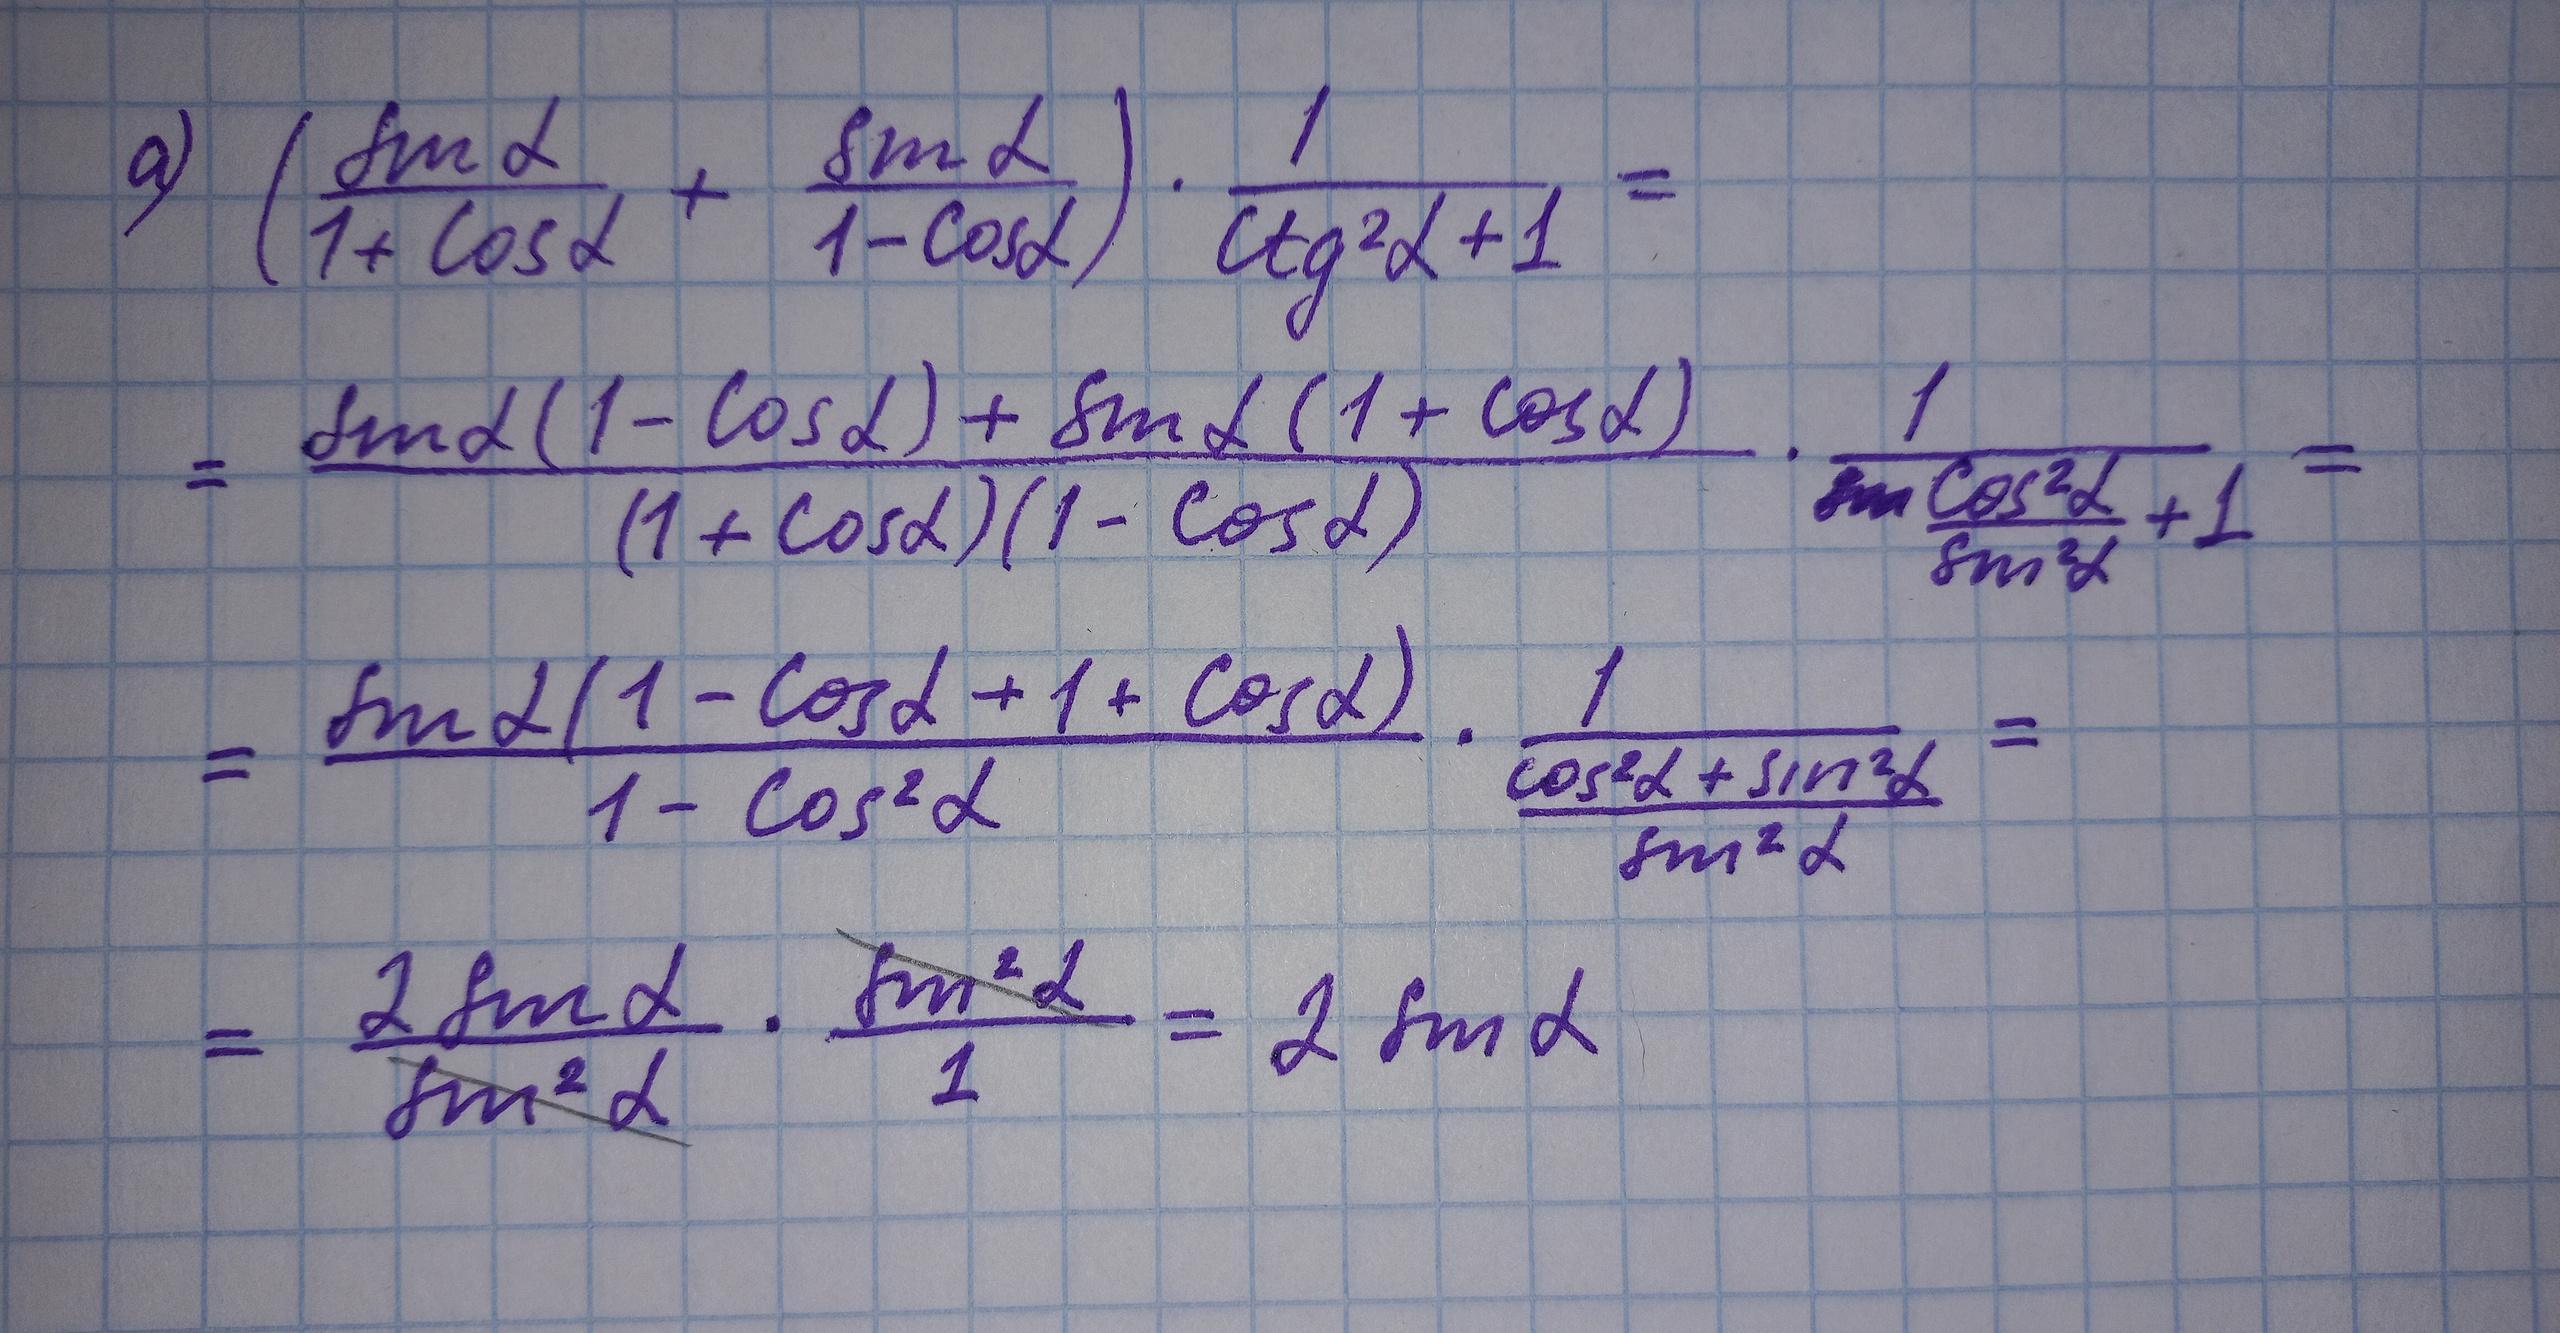 а) (sin α / (1 + cos α) + sin α / (1 - cos α)) · 1 / (ctg²α + 1) =
= (sin α (1 - cos α) + sin α (1 + cos α)) / ((1 + cos α)(1 - cos α)) · 1 / (cos²α / sin²α + 1) =
= sin α (1 - cos α + 1 + cos α) / (1 - cos²α) · 1 / ((cos²α + sin²α) / sin²α) =
= 2 sin α / sin²α · sin²α / 1 = 2 sin α